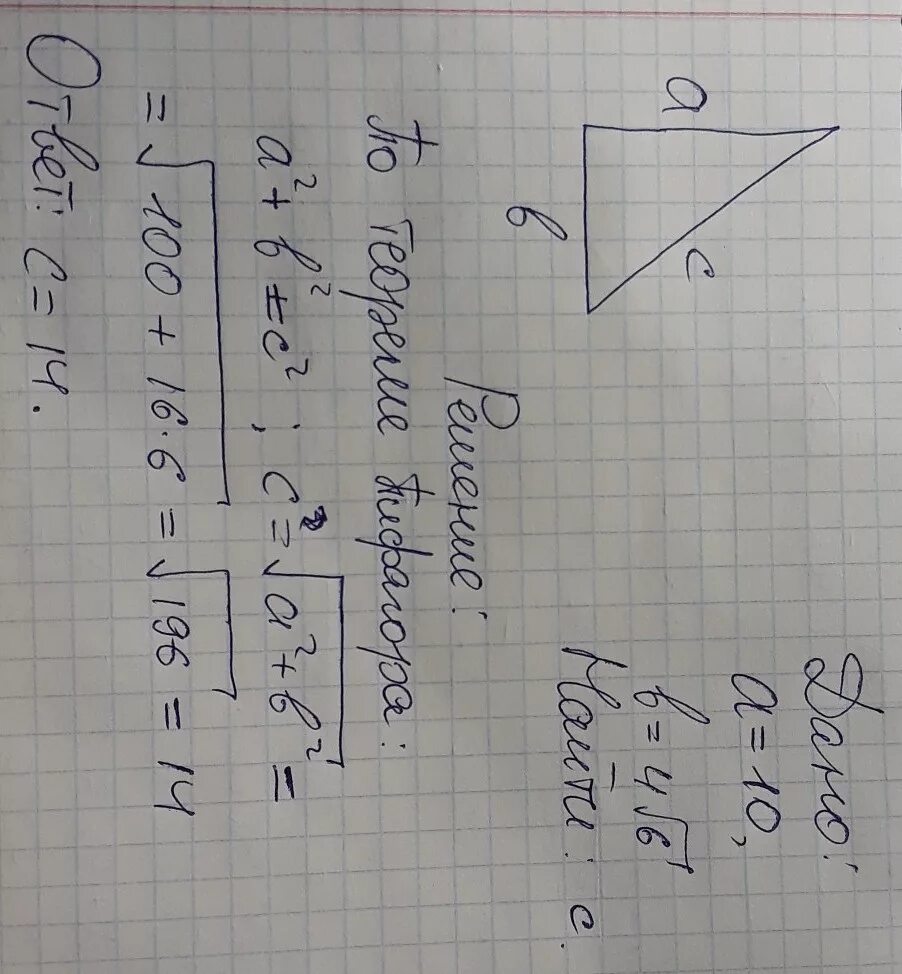 Дано:
a = 10,
b = 4√6
Найти: c.
a
c
b
Решение:
По теореме Пифагора:
a² + b² = c² ; c = √a² + b² =
= √100 + 16·6 = √196 = 14
Ответ: c = 14.